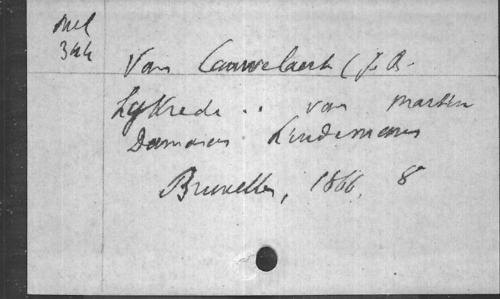 Mel
344
Van Cauwelaert (J. B.
Lykrede .. van Martin
Damasus Lindemans
Bruxelles, 1866, 8